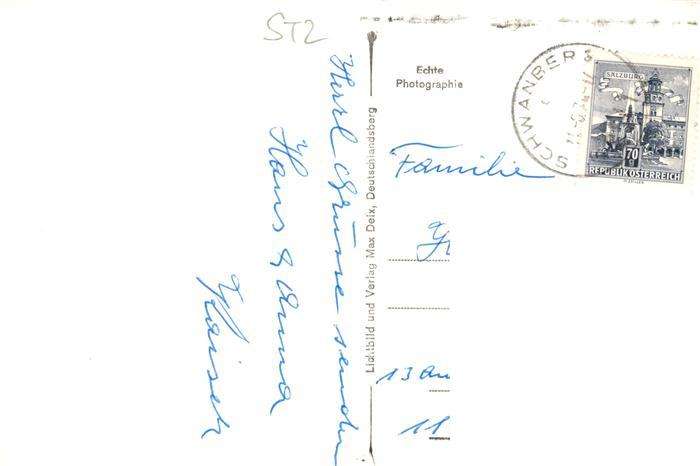 ST2
Herzl. Grüsse senden
Hans & Anna
Kaiser
Lichtbild und Verlag Max Deix, Deutschlandsberg
Echte
Photographie
SCHWANBERG
SALZBURG
70
REPUBLIK ÖSTERREICH
Familie
13 an
11